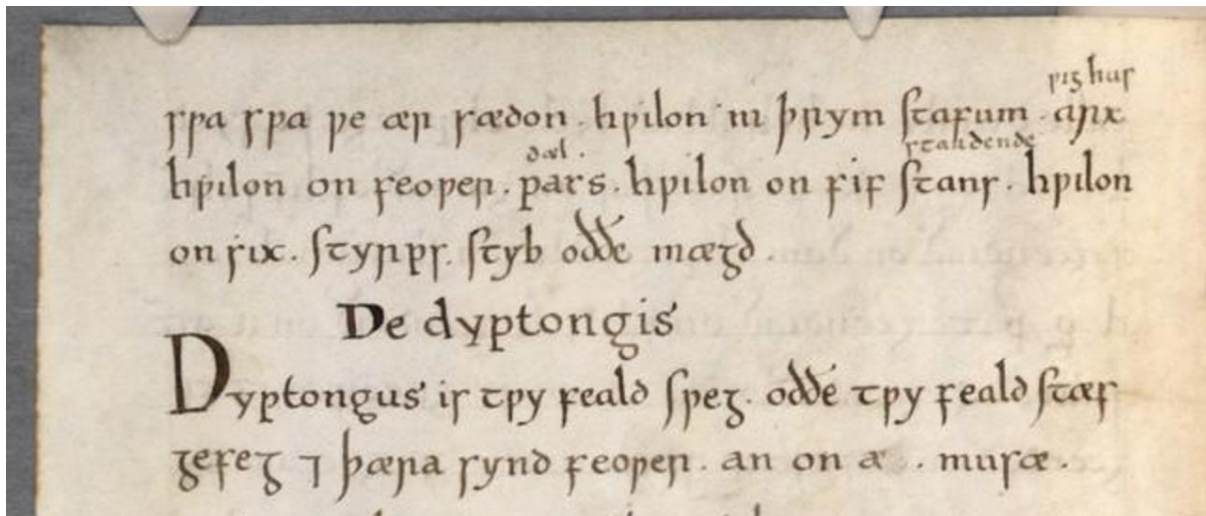 ƿighus
sƿa sƿa ƿe ær sædon . hƿilon in þrym stafum . arx
dæl . standende
hƿilon on feoƿer . pars . hƿilon on fif stans . hƿilon
on six . styrps . styb oððe mægð .
De dyptongis
Dyptongus is tƿy feald sƿeg . oððe tƿy feald stæf
gefeg ⁊ þæra synd feoƿer . an on æ . musæ .